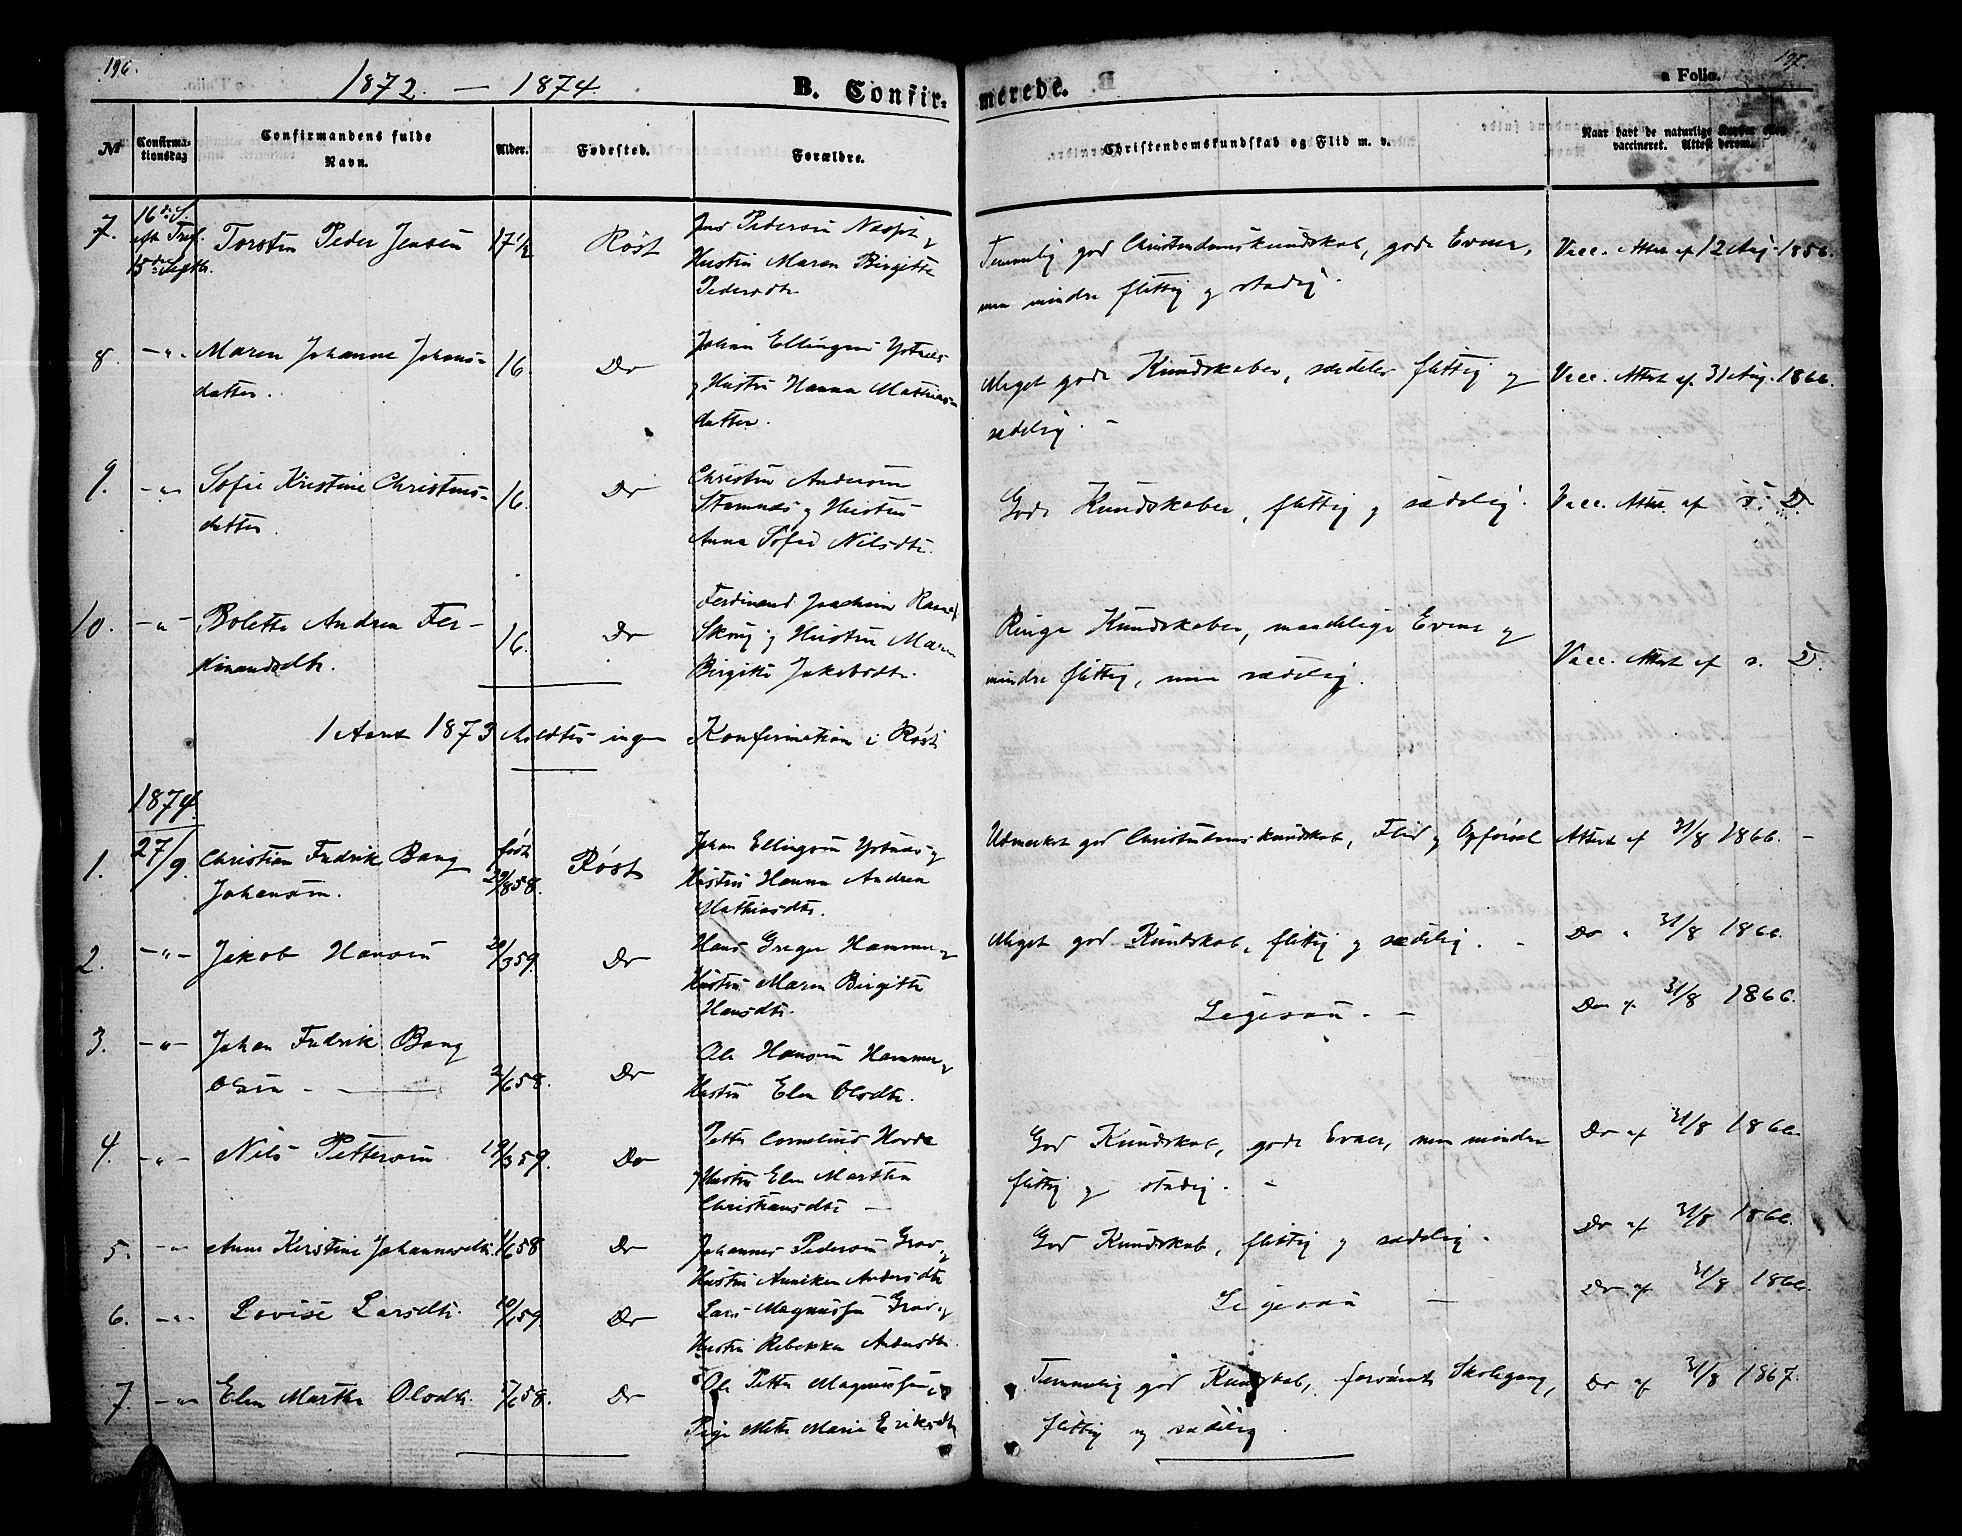 196.
1872. — 1874.
B. Confir-
merede.
a Folio.
№
Confirma-
tionsdag
Confirmandens fulde
Navn.
Alder.
Fødested.
Forældre.
Christendomskundskab og Flid m. v.
Naar havt de naturlige Kopper eller
vaccineret. Attest derom.
7.
16de S.
eft. Tref.
15de Septbr.
Torsten Peder Jensen
17½
Røst
Jens Pedersen
Hustru Maren Birgitte
Pedersdtr
Temmelig god Christendomskundskab, gode Evner,
men mindre flittig og stadig.
Vacc. Attest af 12 Aug. 1856.
8.
—"—
Maren Johanne Johans-
datter.
16.
Do
Johan Ellingsen Ystnes
og Hustru Hanna Mathias-
datter.
Meget gode Kundskaber, særdeles flittig og
sædelig. –
Vacc. Attest af 31 Aug. 1866.
9.
—"—
Sofie Kristine Christens-
datter.
16.
Do
Christen Andersen
Stamnæs og Hustru
Anna Sofie Nilsdtr.
Gode Kundskaber, flittig og sædelig.
Vacc. Attest af s. D.
10.
—"—
Bolette Andrea Fer-
dinandsdtr.
16.
Do
Ferdinand Joachim
og Hustru Maren
Birgitte Jakobsdtr.
Ringe Kundskaber, maadelige Evner og
mindre flittig, men sædelig.
Vacc. Attest af s. D.
I Aaret 1873 holdtes ingen Konfirmation i Røst
1874.
1.
27/9.
Christian Fredrik Bang
Johansen.
født
29/8 58.
Røst
Johan Ellingsen Ystnæs og
Hustru Hanna Andrea
Mathiasdtr.
Udmerket god Christendomskundskab, Flid og Opførsel
Attest af 31/8 1866. –
2.
—"—
Jakob Hansen
29/3 59.
Do
Hans Greger Hammer og
Hustru Maren Birgitte
Hansdtr.
Meget god Kundskab, flittig og sædelig. –
Do " 31/8 1866.
3.
—"—
Johan Fredrik Bang
Olsen –
2/6 58.
Do
Ole Hansen Hammer og
Hustru Elen Olsdtr.
Ligesaa. –
Do af 31/8 1866.
4.
—"—
Nils Pettersen
19/3 59.
Do
Petter Cornelius
og Hustru Elen Marthea
Christiansdtr –
God Kundskab, gode Evner, men mindre
flittig og stadig. –
Do af 31/8 1866.
5.
—"—
Anne Kirstine Johannesdtr.
Do
Johannes Pedersen Grav og
Hustru Anniken Andersdtr
God Kundskab, flittig og sædelig.
Do af 31/8 1866.
6.
—"—
Lovise Larsdtr.
Do
Lars Magnussen Grav og
Hustru Rebekka Andersdtr.
Ligesaa –
Do af 31/8 1866.
7.
—"—
Elen Marthe Olsdtr.
Do
Ole Petter Magnussen og
Pige Mete Marie Eriksdtr
Temmelig god Kundskab, forsømt Skolegang,
flittig og sædelig.
Do af 31/8 1867.